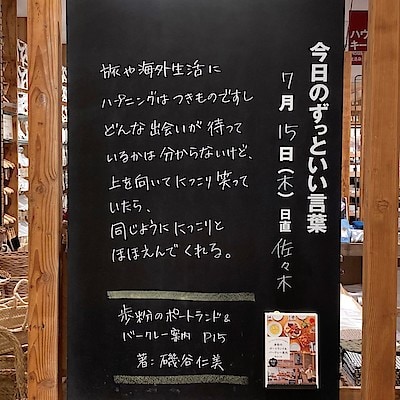 今日のずっといい言葉
7月15日(木)日直 佐々木
旅や海外生活に
ハプニングはつきものですし
どんな出会いが待って
いるかは分からないけど、
上を向いてにっこり笑って
いたら、
同じようににっこりと
ほほえんでくれる。
歩粉のポートランド&
バークレー案内 P15
著:磯谷仁美